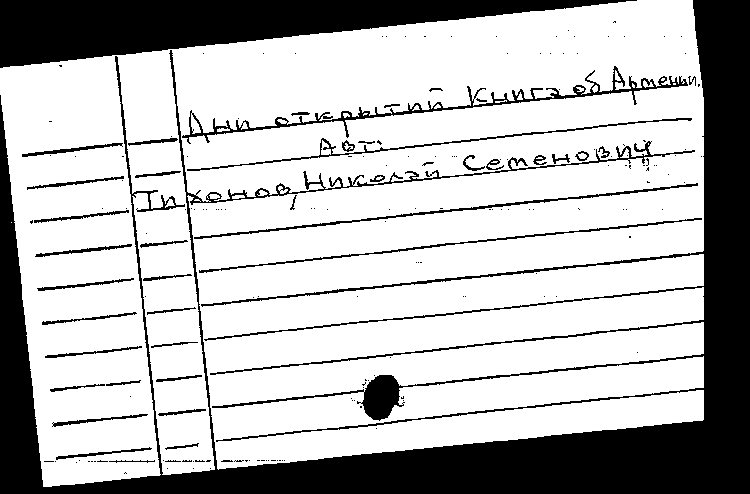 Дни открытий Книга об Армении.
Авт:
Тихонов, Николай Семенович